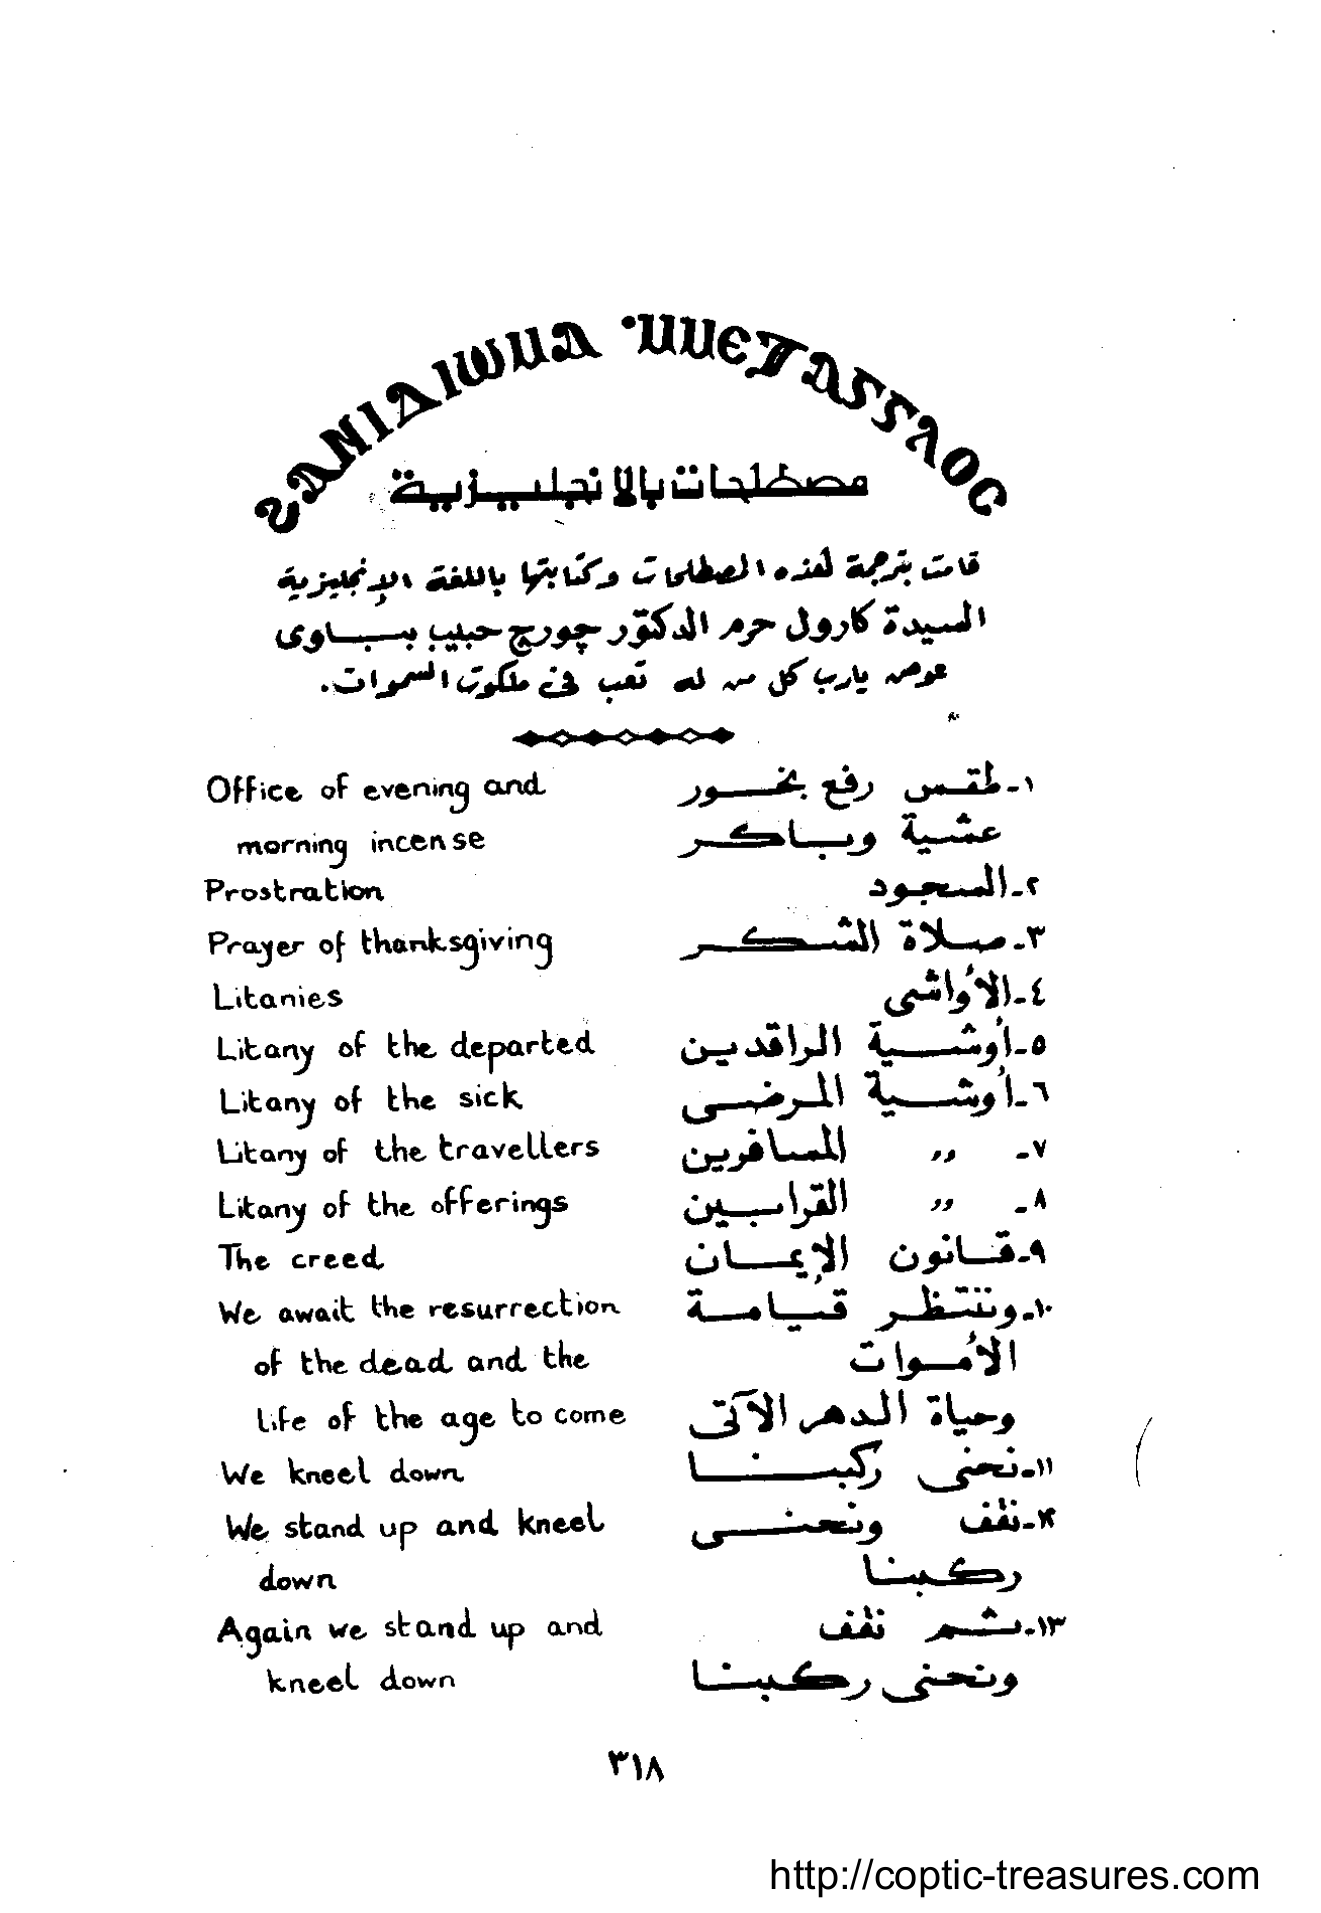 ϨⲀⲚⲒⲆⲒⲰⲘⲀ ⲘⲘⲈⲦⲀⲤⲤⲖⲞⲤ
مصطلحات بالإنجليزية
قامت بترجمة لهذه المصطلحات وكتابتها باللغة الإنجليزية
السيدة كارول حرم الدكتور چورچ حبيب ببـاوى
عوض يارب كل من له تعب فى ملكوت السموات.
Office of evening and ١- طقس رفع بخور
morning incense عشية وباكر
Prostration ٢- السجود
Prayer of thanksgiving ٣- صلاة الشكر
Litanies ٤- الأواشى
Litany of the departed ٥- أوشية الراقدين
Litany of the sick ٦- أوشية المرضى
Litany of the travellers ٧- ,, المسافرين
Litany of the offerings ٨- ,, القرابين
The creed ٩- قانون الإيمان
We await the resurrection ١٠- وننتظر قيامة
of the dead and the الأموات
life of the age to come وحياة الدهر الآتى
We kneel down ١١- نحنى ركبنا
We stand up and kneel ١٢- نقف ونحنى
down ركبنا
Again we stand up and ١٣- ثم نقف
kneel down ونحنى ركبنا
٣١٨
http://coptic-treasures.com